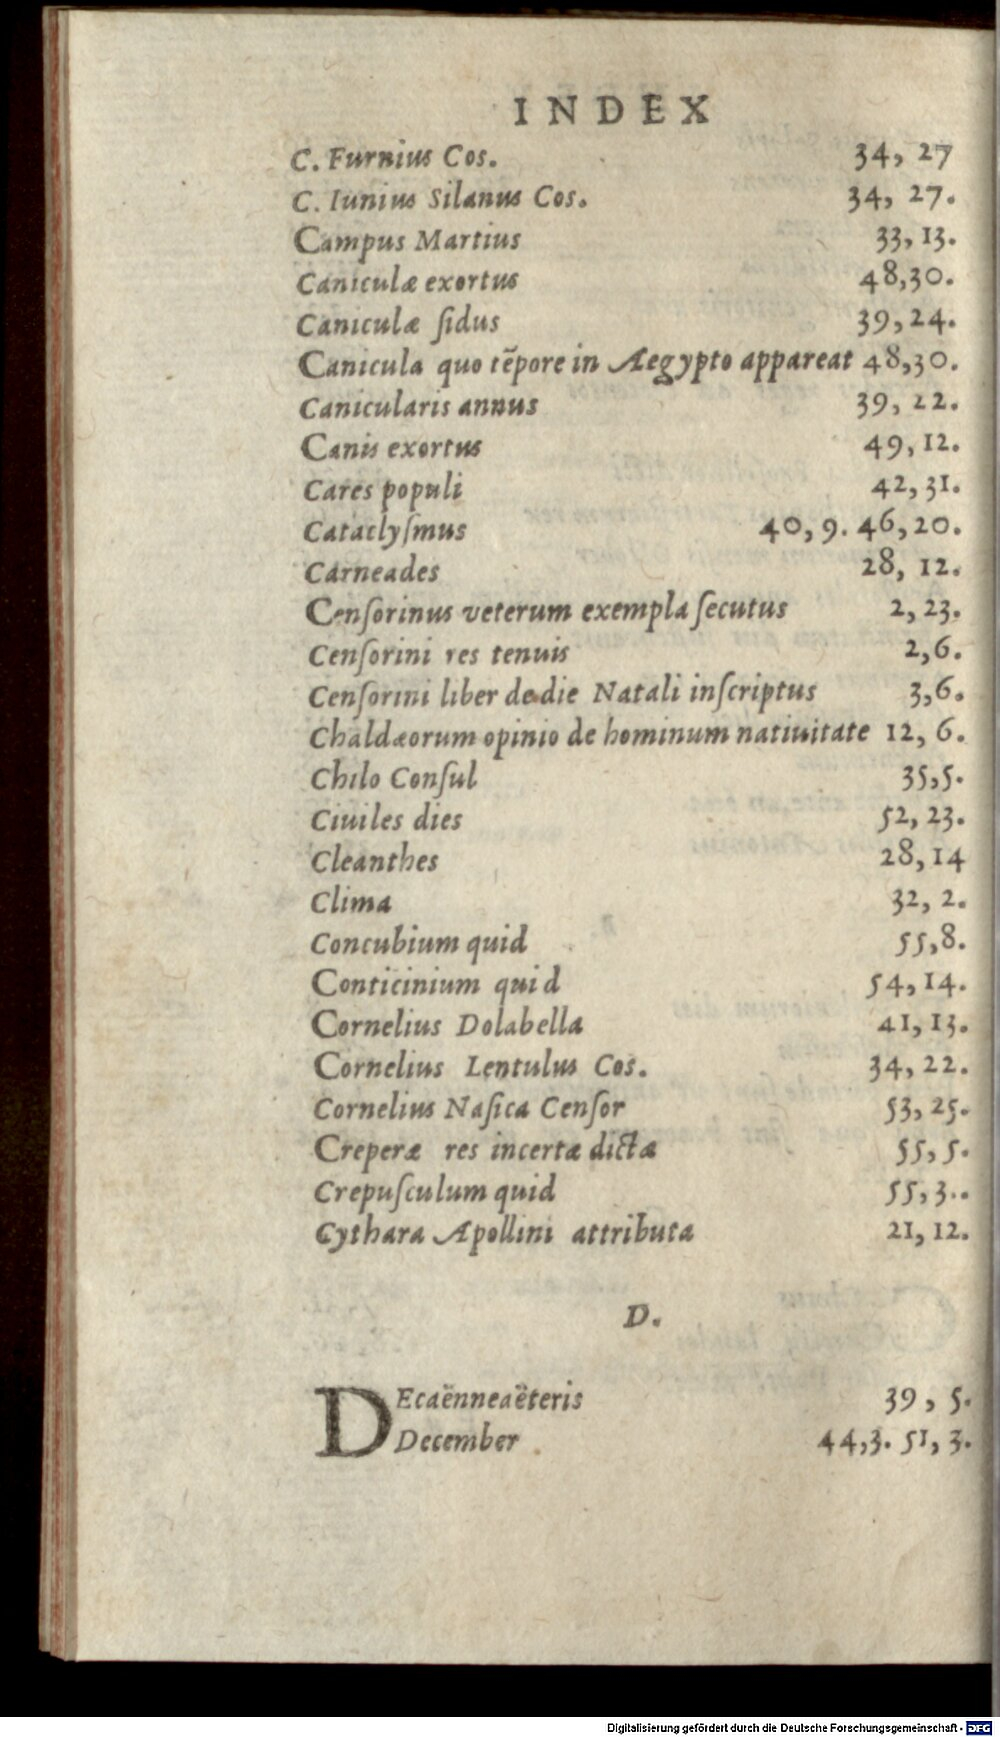 INDEX
C. Furnius Cos. 34, 27
C. Iunius Silanus Cos. 34, 27.
Campus Martius 33, 13.
Caniculæ exortus 48,30.
Caniculæ ſidus 39, 24.
Canicula quo tẽpore in Aegypto appareat 48,30.
Canicularis annus 39, 22.
Canis exortus 49, 12.
Cares populi 42, 31.
Cataclyſmus 40, 9. 46, 20.
Carneades 28, 12.
Cenſorinus veterum exempla ſecutus 2, 23.
Cenſorini res tenuis 2,6.
Cenſorini liber de die Natali inſcriptus 3,6.
Chaldæorum opinio de hominum natiuitate 12, 6.
Chilo Conſul 35,5.
Ciuiles dies 52, 23.
Cleanthes 28, 14
Clima 32, 2.
Concubium quid 55,8.
Conticinium quid 54, 14.
Cornelius Dolabella 41, 13.
Cornelius Lentulus Cos. 34, 22.
Cornelius Naſica Cenſor 53, 25.
Creperæ res incertæ dictæ 55, 5.
Crepuſculum quid 55, 3..
Cythara Apollini attributa 21, 12.
D.
DEcaënneaëteris 39, 5.
December 44,3. 51, 3.
Digitalisierung gefördert durch die Deutsche Forschungsgemeinschaft - DFG